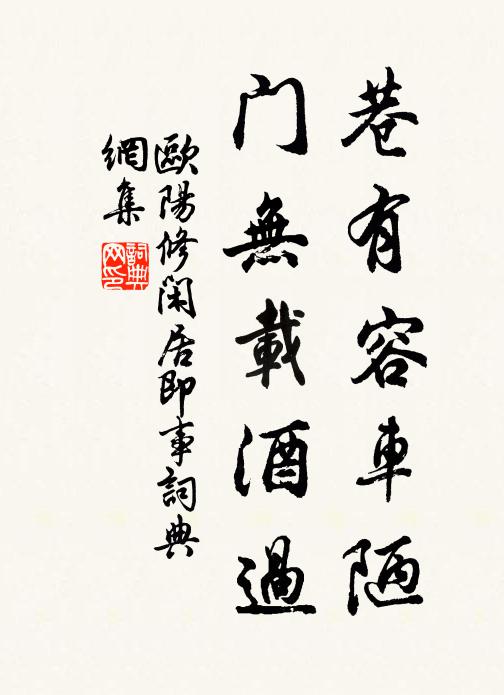 巷有容車陋
門無載酒過
歐陽修閑居即事詞典
網集
詞典网印